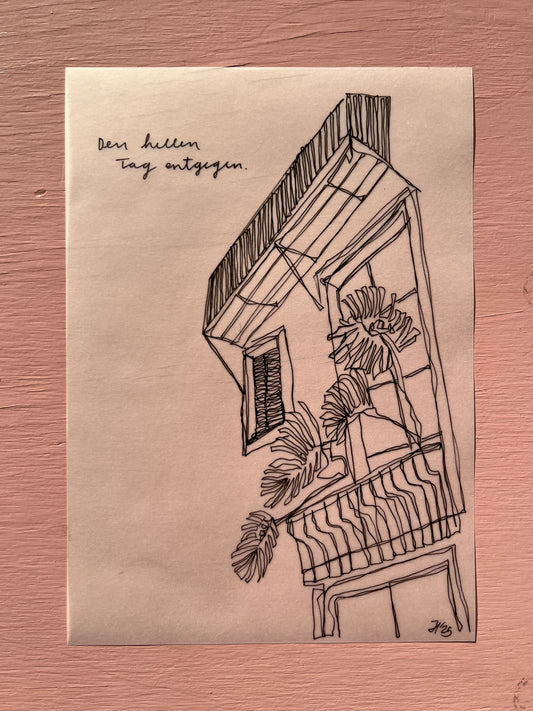 Den hellen
Tag entgegen.